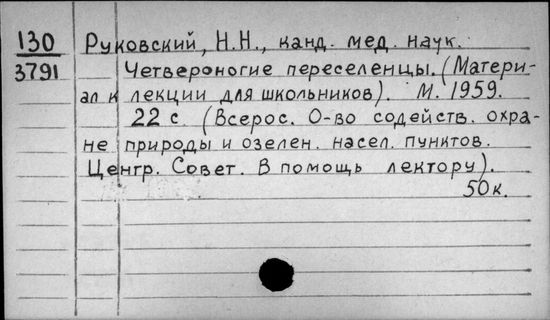 130 Руковский, Н.Н., канд. мед. наук.
3791 Четвероногие переселенцы. (Матери-
ал к лекции для школьников). М. 1959.
22 с (Всерос. О-во содейств. охра-
не природы и озелен. насел. пунктов.
Центр. Совет. В помощь лектору).
50к.